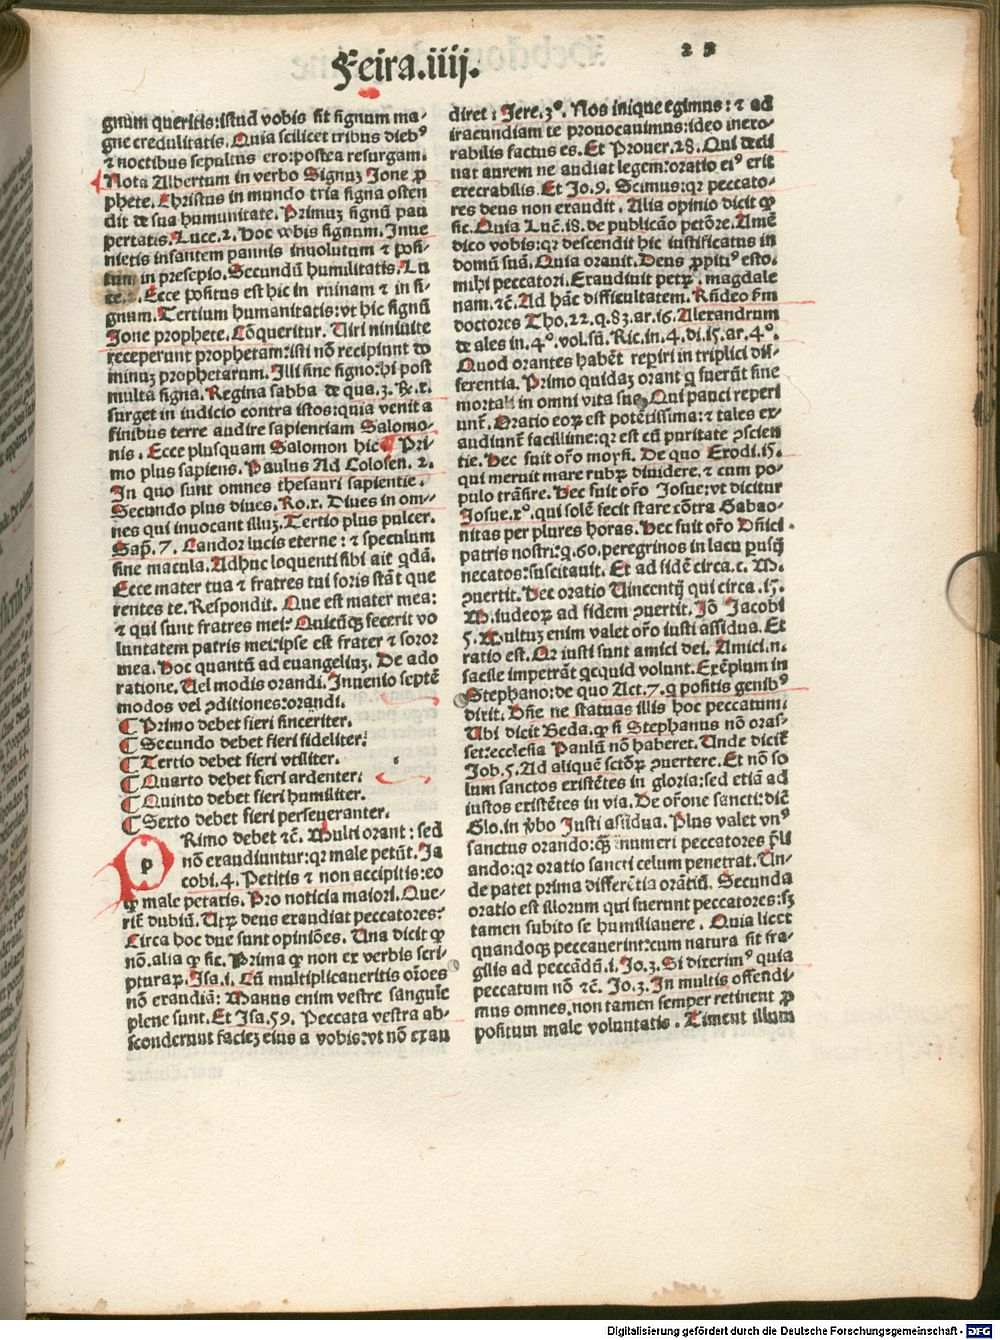 Feira.iiij.
gnum queritis:istud vobis sit signum ma-
gne credulitatis.Quia scilicet tribus dieb⁹
⁊ noctibus sepultus ero:postea resurgam.
Nota Albertum in verbo Signuꝫ Jone ꝓ
phete.Christus in mundo tria signa osten
dit de sua humunitate.Primuꝫ signū pau
pertatis.Luce.2.Hoc vobis signum.Inue
nietis infantem pannis inuolutum ⁊ posi-
tum in presepio.Secundū humilitatis.Lu
ce.2.Ecce positus est hic in ruinam ⁊ in si-
gnum.Tertium humanitatis:vt hic signū
Jone prophete.Cōqueritur.Uiri niniuite
receperunt prophetam:isti nō recipiunt do
minuꝫ prophetarum.Illi sine signo:hi post
multa signa.Regina sabba de qua.3.Re.x.
surget in iudicio contra istos:quia venit a
finibus terre audire sapientiam Salomo-
nis.Ecce plusquam Salomon hic Pri-
mo plus sapiens.Paulus Ad Colosen.2.
In quo sunt omnes thesauri sapientie.
Secundo plus diues.Ro.x.Diues in om-
nes qui inuocant illuꝫ.Tertio plus pulcer.
Sap̄.7.Candor lucis eterne:⁊ speculum
sine macula.Adhuc loquenti sibi ait qdā.
Ecce mater tua ⁊ fratres tui foris stāt que
rentes te.Respondit.Que est mater mea:
⁊ qui sunt fratres mei:Quicūqꝫ fecerit vo
luntatem patris mei:ipse est frater ⁊ soror
mea.Hoc quantū ad euangeliuꝫ.De ado
ratione.Uel modis orandi.Inuenio septē
modos vel ꝯditiones:orandi.
¶Primo debet fieri sinceriter.
¶Secundo debet fieri fideliter:
¶Tertio debet fieri vtiliter.
¶Quarto debet fieri ardenter:
¶Quinto debet fieri humiliter.
¶Sexto debet fieri perseueranter.
PRimo debet ⁊c.Multi orant:sed
nō exaudiuntur:qꝛ male petūt.Ja
cobi.4.Petitis ⁊ non accipitis:eo
ꝙ male petatis.Pro noticia maiori.Que-
rit̄ dubiū.Utꝝ deus exaudiat peccatores:
Circa hoc due sunt opiniōes.Una dicit ꝙ
nō.alia ꝙ sic.Prima ꝙ non ex verbis scri-
pturaꝝ.Isa.i.Cū multiplicaueritis oīoes
nō exaudiā:Manus enim vestre sanguīe
plene sunt.Et Isa.59.Peccata vestra ab-
sconderunt facieꝫ eius a vobis:vt nō exau
diret:Jere.3º.Nos inique egimus:⁊ ad
iracundiam te prouocauimus:ideo inexo-
rabilis factus es.Et Prouer.28.Qui decli
nat aurem ne audiat legem:oratio ei⁹ erit
execrabilis.Et Jo.9.Scimus:qꝛ peccato-
res deus non exaudit.Alia opinio dicit ꝙ
sic.Quia Luc̄.18.de publicāo petōre.Amē
dico vobis:qꝛ descendit hic iustificatus in
domū suā.Quia orauit.Deus ꝓpiti⁹ esto.
mihi peccatori.Exaudiuit petꝝ.magdale
nam.⁊c.Ad hāc difficultatem.Rn̄deo s̄m
doctores Tho.22.q.83.ar.16.Alexandrum
de ales in.4º.vol.sū.Ric.in.4.di.15.ar.4º.
Quod orantes habēt reperiri in triplici dif-
ferentia.Primo quidaꝫ orant q fuerūt sine
mortali in omni vita sua.Qui pauci reperi
unt̄.Oratio eoꝝ est potētissima:⁊ tales ex-
audiunt̄ facillime:qꝛ est cū puritate ꝯscien
tie.Hec fuit or̄o moysi.De quo Exodi.15.
qui meruit mare rubꝝ diuidere.⁊ cum po-
pulo trāsire.Hec fuit or̄o Josue:vt dicitur
Josue.xº.qui solē fecit stare cōtra Gabao-
nitas per plures horas.Hec fuit or̄o Dn̄ici
patris nostri:q.60.peregrinos in lacu pusiꝫ
necatos:suscitauit.Et ad fidē circa.c.M.
ꝯuertit.Hec oratio Uincentij qui circa.15.
M.iudeoꝝ ad fidem ꝯuertit.Jō Jacobi
5.Multuꝫ enim valet or̄o iusti assidua.Et
ratio est.Qꝛ iusti sunt amici dei.Amici.n.
facile impetrāt qcquid volunt.Exēplum in
Stephano:de quo Act.7.q positis genib⁹
dixit.Dn̄e ne statuas illis hoc peccatum:
Ubi dicit Beda.ꝙ si Stephanus nō oras-
set:ecclesia Paulū nō haberet.Unde dicit̄
Job.5.Ad aliquē sctōꝝ ꝯuertere.Et nō so
lum sanctos existētes in gloria:sed etiā ad
iustos existētes in via.De or̄one sancti:diē
Glo.in ꝟbo Justi assidua.Plus valet vn⁹
sanctus orando:ꝙ̄ innumeri peccatores p̄li
ando:qꝛ oratio sancti celum penetrat.Un-
de patet prima differētia orātiū.Secunda
oratio est illorum qui fuerunt peccatores:sꝫ
tamen subito se humiliauere.Quia licet
quandoqꝫ peccauerint:cum natura sit fra-
gilis ad peccādū.i.Jo.3.Si dixerim⁹ quia
peccatum nō ⁊c.Jo.3.In multis offendi-
mus omnes.non tamen semper retinent ꝓ
positum male voluntatis.Timent illum
Digitalisierung gefördert durch die Deutsche Forschungsgemeinschaft - DFG